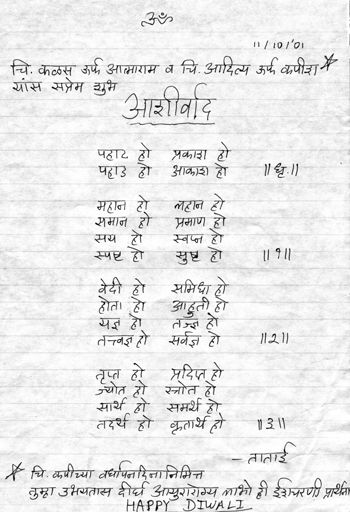 ॐ
11/10/'01
चि. कळस ऊर्फ आत्माराम व चि. आदित्य ऊर्फ कपीश *
यांस सप्रेम शुभ
आशीर्वाद
पहाट हो प्रकाश हो
पहाड हो आकाश हो ॥ धृ. ॥
महान हो लहान हो
समान हो प्रमाण हो
सत्य हो स्वप्न हो
स्पष्ट हो सुष्ट हो ॥ १ ॥
वेदी हो समिधा हो
होता हो आहुती हो
यज्ञ हो तज्ज्ञ हो
तत्त्वज्ञ हो सर्वज्ञ हो ॥ २ ॥
तृप्त हो प्रदिप्त हो
ज्योत हो स्त्रोत हो
सार्थ हो समर्थ हो
तदर्थ हो कृतार्थ हो ॥ ३ ॥
- ताताई
* चि. कपीच्या वर्धापनदिनानिमित्त
तुम्हा उभयतास दीर्घ आयुरारोग्य लाभो ही ईशचरणी प्रार्थना
HAPPY DIWALI